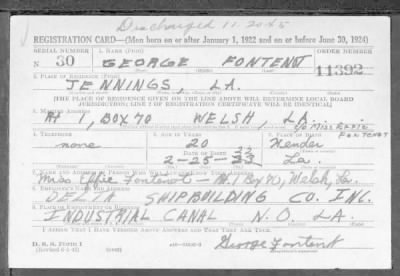 Discharged 11-20-45
REGISTRATION CARD—(Men born on or after January 1, 1922 and on or before June 30, 1924)
SERIAL NUMBER 1. NAME (Print) ORDER NUMBER
N 30 GEORGE FONTENOT 11392
2. PLACE OF RESIDENCE (Print)
JENNINGS, LA.
[THE PLACE OF RESIDENCE GIVEN ON THE LINE ABOVE WILL DETERMINE LOCAL BOARD
JURISDICTION; LINE 2 OF REGISTRATION CERTIFICATE WILL BE IDENTICAL]
3. MAILING ADDRESS
RT 1, BOX 70 WELSH, LA. c/o MISS EFFIE
FONTENOT
4. TELEPHONE 5. AGE IN YEARS 6. PLACE OF BIRTH
none 20 Kender
DATE OF BIRTH 22
2-25-23 La.
7. NAME AND ADDRESS OF PERSON WHO WILL ALWAYS KNOW YOUR ADDRESS
Miss Effie Fontenot - Rt. 1 Box 70, Welsh, La.
8. EMPLOYER'S NAME AND ADDRESS
DELTA SHIPBUILDING CO. INC.
9. PLACE OF EMPLOYMENT OR BUSINESS
INDUSTRIAL CANAL N.O. LA.
I AFFIRM THAT I HAVE VERIFIED ABOVE ANSWERS AND THAT THEY ARE TRUE.
D. S. S. Form 1
George Fontenot